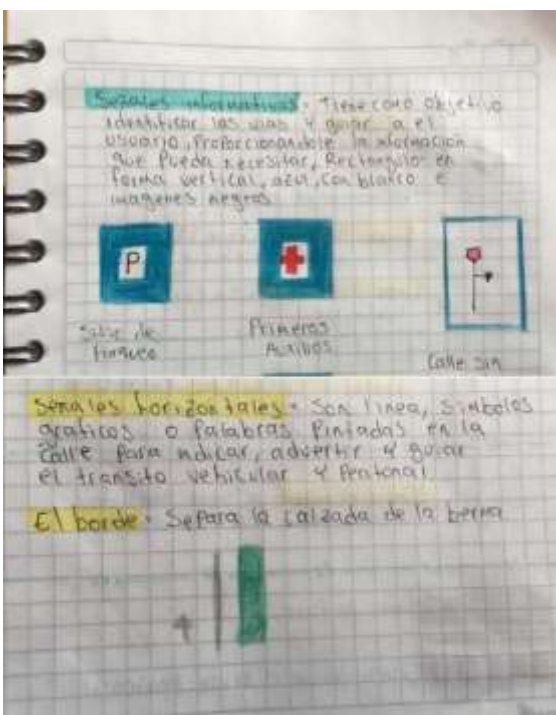 Señales informativas: Tiene como objetivo
identificar las vias y guiar a el
usuario, Proporcionandole la informacion
que Pueda necesitar, Rectangulo en
forma vertical, azul, con blanco e
imagenes negras
P
Primeros
Auxilios
Calle sin
Señales horizontales: Son linea, simbolos
graficos o Palabras Pintadas en la
calle Para indicar, advertir y guiar
el transito vehicular y Peatonal
El borde: Separa la calzada de la berma